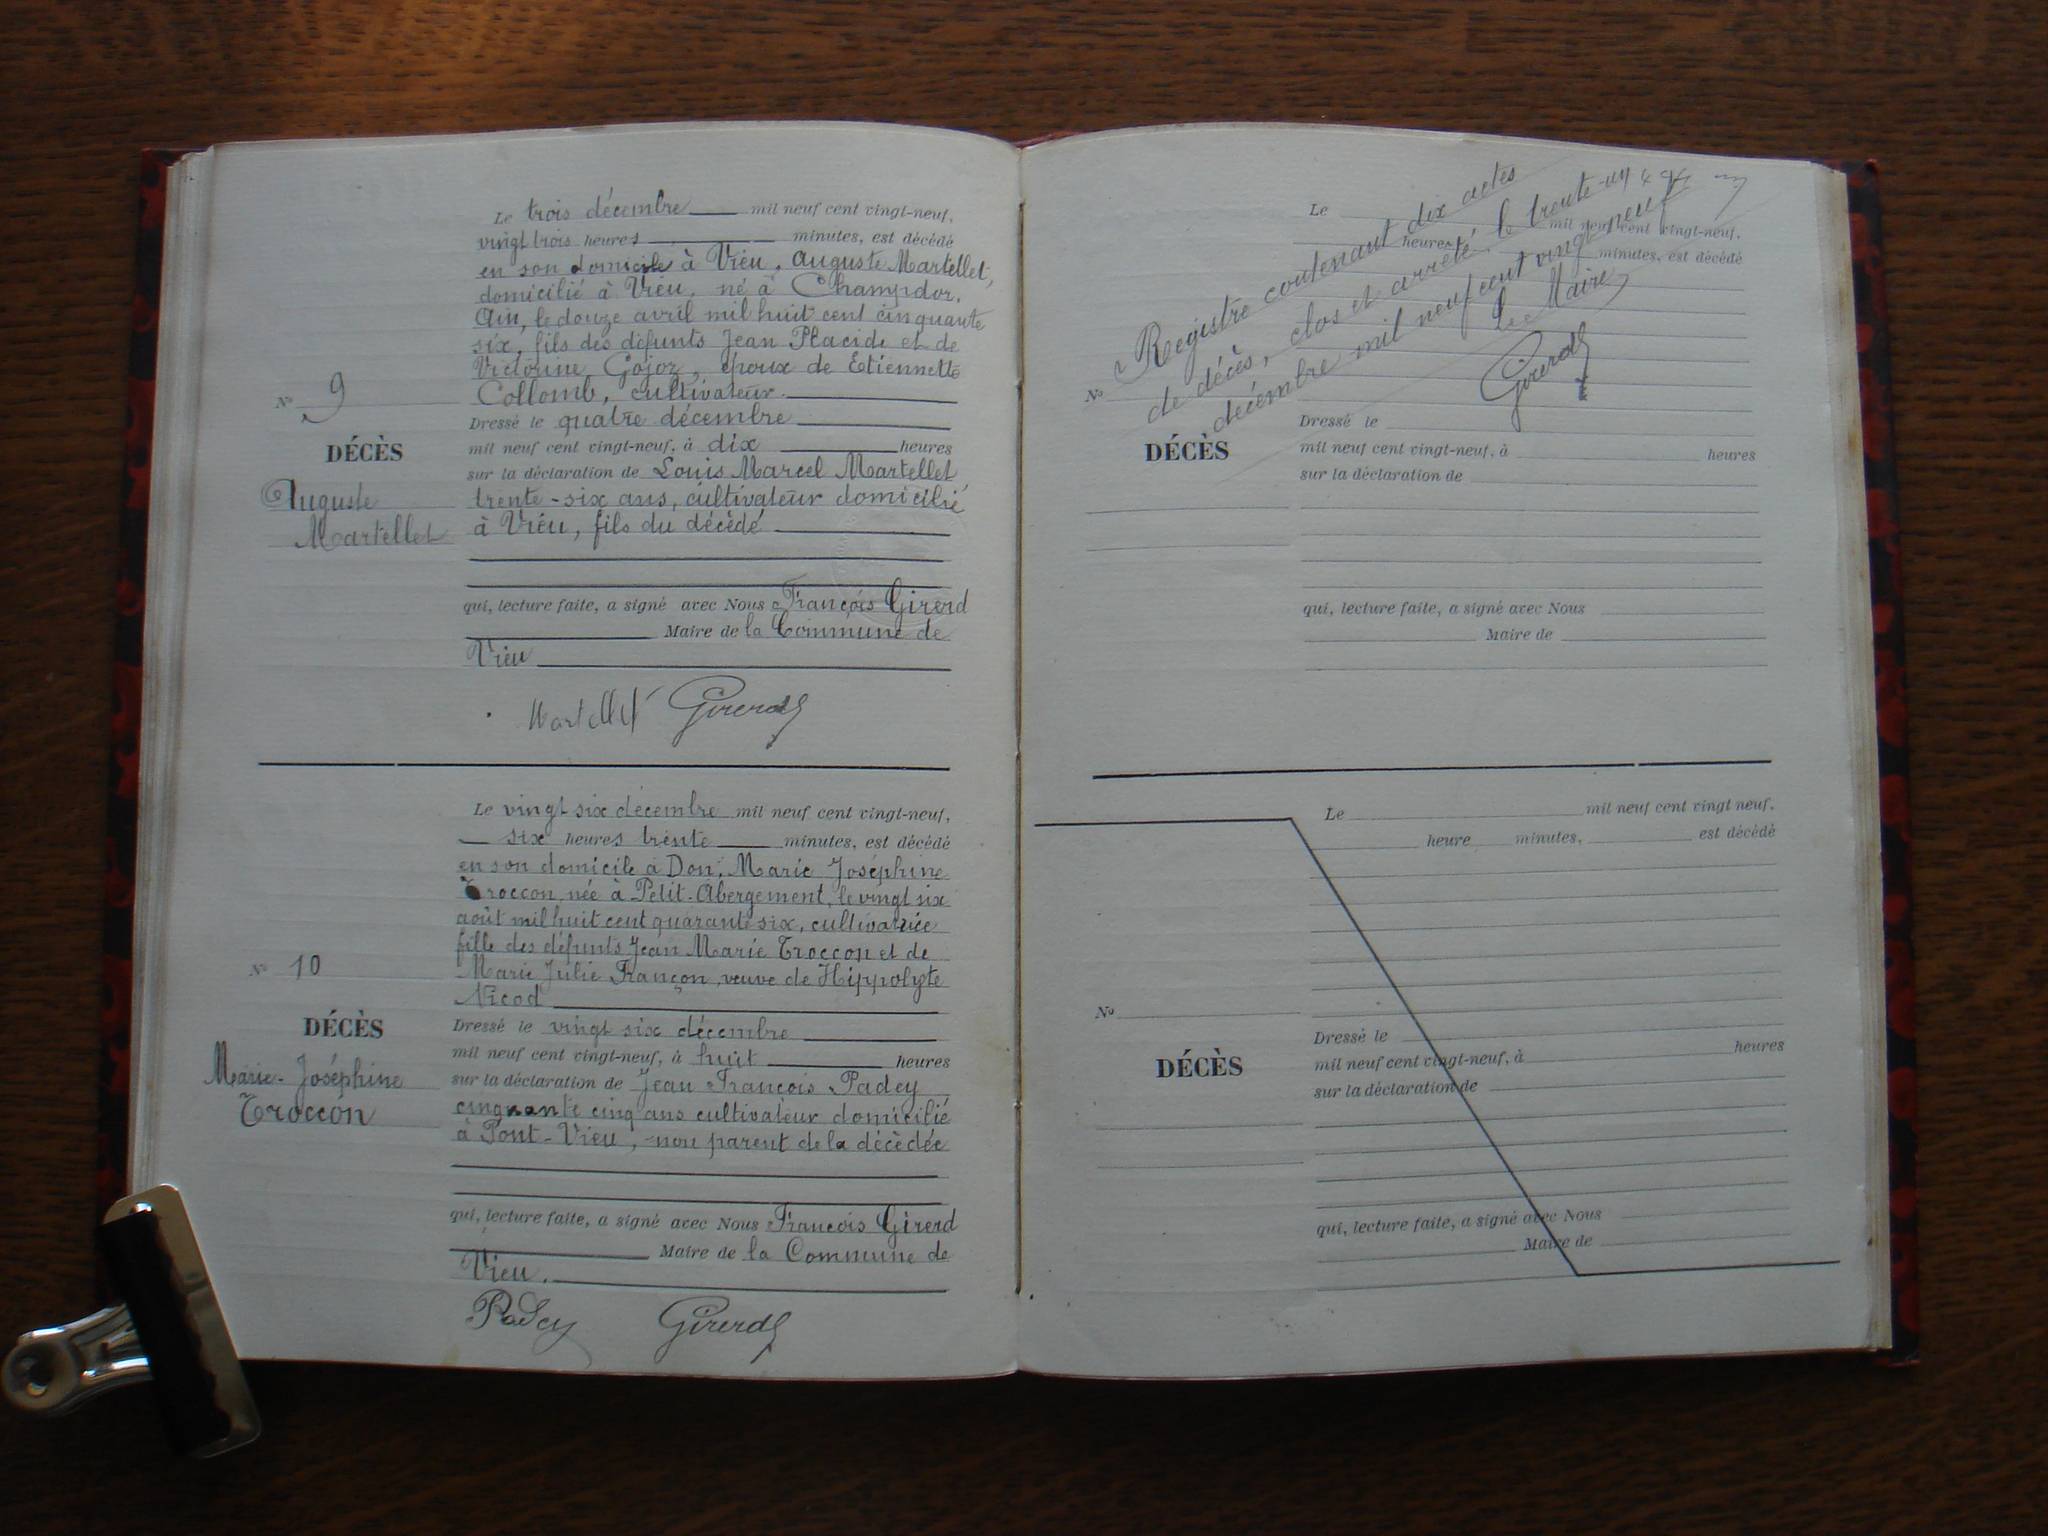 Le trois décembre mil neuf cent vingt-neuf,
vingt trois heures minutes, est décédé
en son domicile à Vieu, Auguste Martellet,
domicilié à Vieu, né à Champdor,
Ain, le douze avril mil huit cent cinquante
six, fils des défunts Jean Placide et de
Victorine Gojoz, époux de Etiennette
Collomb, cultivateur.
N° 9
DÉCÈS
Auguste
Martellet
Dressé le quatre décembre
mil neuf cent vingt-neuf, à dix heures
sur la déclaration de Louis Marcel Martellet,
trente-six ans, cultivateur domicilié
à Vieu, fils du décédé
qui, lecture faite, a signé avec Nous François Girerd
Maire de la Commune de
Vieu
Martellet Girerd
Le vingt six décembre mil neuf cent vingt-neuf,
six heures trente minutes, est décédé
en son domicile à Don, Marie Joséphine
Troccon, née à Petit-Abergement, le vingt six
août mil huit cent quarante six, cultivatrice
fille des défunts Jean Marie Troccon et de
Marie Julie Françon, veuve de Hippolyte
Nicod
N° 10
DÉCÈS
Marie-Joséphine
Troccon
Dressé le vingt six décembre
mil neuf cent vingt-neuf, à huit heures
sur la déclaration de Jean François Padey,
cinquante cinq ans cultivateur domicilié
à Pont-Vieu, non parent de la décédée
qui, lecture faite, a signé avec Nous François Girerd
Maire de la Commune de
Vieu.
Padey Girerd
Registre contenant dix actes
de décès, clos et arrêté, le trente-un
décembre mil neuf cent vingt neuf
Le Maire
Girerd
Le mil neuf cent vingt-neuf,
heures minutes, est décédé
N°
DÉCÈS
Dressé le
mil neuf cent vingt-neuf, à heures
sur la déclaration de
qui, lecture faite, a signé avec Nous
Maire de
Le mil neuf cent vingt neuf,
heure minutes, est décédé
N°
DÉCÈS
Dressé le
mil neuf cent vingt-neuf, à heures
sur la déclaration de
qui, lecture faite, a signé avec Nous
Maire de